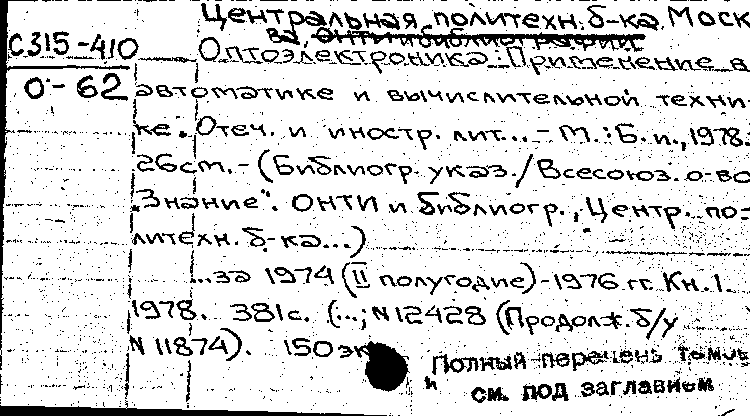 Центральная политехн. б-ка. Моск
С315-410
ва, ОНТИ и библиографии
О-62
Оптоэлектроника: Применение в
автоматике и вычислительной техни
ке: Отеч. и иностр. лит... - М.: Б. и., 1978.
26 см. - (Библиогр. указ. / Всесоюз. о-во
„Знание". ОНТИ и библиогр., Центр. по-
литехн. б-ка...)
...за 1974 (II полугодие) - 1976 гг. Кн. 1.
1978. 381 с. (...; N 12428 (Продолж. б/у
N 11874). 150 эк
Полный перечень томов
см. под заглавием